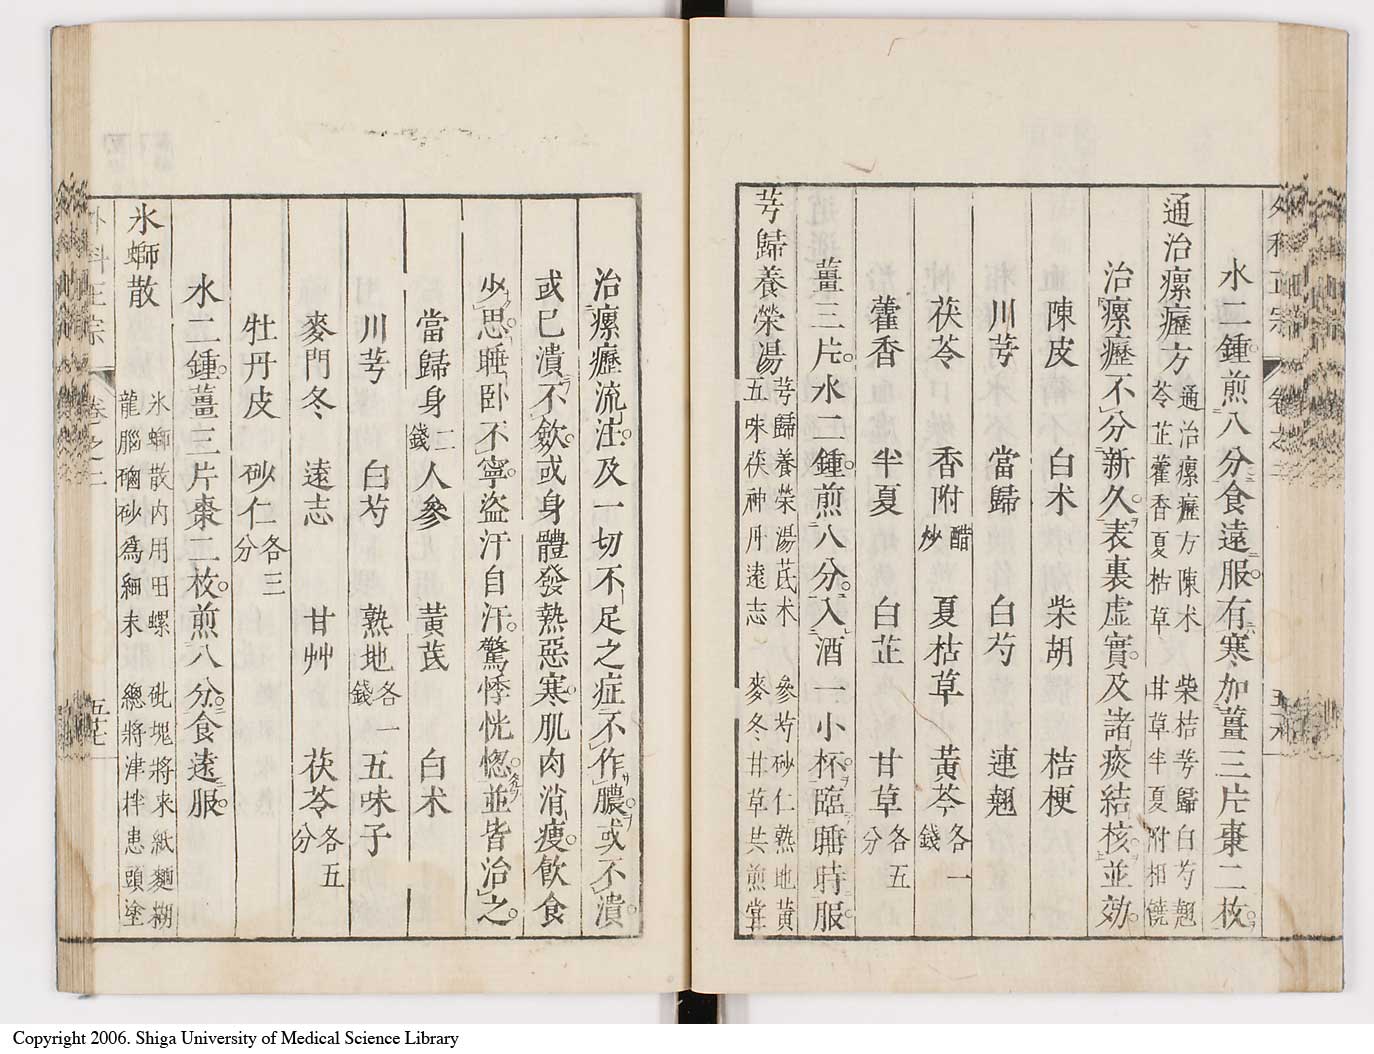 水二鍾煎八分食遠服有寒加薑三片棗二枚
通治瘰癧方
通治瘰癧方陳术 柴桔芎歸白芍翹
苓芷藿香夏枯草 甘草半夏附相饒
治瘰癧不分新久表裏虛實及諸痰結核並効
陳皮 白术 柴胡 桔梗
川芎 當歸 白芍 連翹
茯苓 香附醋炒 夏枯草 黃芩各一錢
藿香 半夏 白芷 甘草各五分
薑三片水二鍾煎八分入酒一小杯臨睡時服
芎歸養榮湯
芎歸養榮湯芪术 參芍砂仁熟地黃
五味茯神丹遠志 麥冬甘草共煎嘗
治瘰癧流注及一切不足之症不作膿或不潰
或已潰不歛或身體發熱惡寒肌肉消瘦飲食
少思睡卧不寧盜汗自汗驚悸恍惚並皆治之
當歸身二錢 人參 黃芪 白术
川芎 白芍 熟地各一錢 五味子
麥門冬 遠志 甘艸 茯苓各五分
牡丹皮 砂仁各三分
水二鍾薑三片棗二枚煎八分食遠服
氷螄散
氷螄散内用田螺 砒塊將來紙麵糊
龍腦硇砂爲細末 總將津拌患頭塗
外科正宗 卷之二
Copyright 2006. Shiga University of Medical Science Library